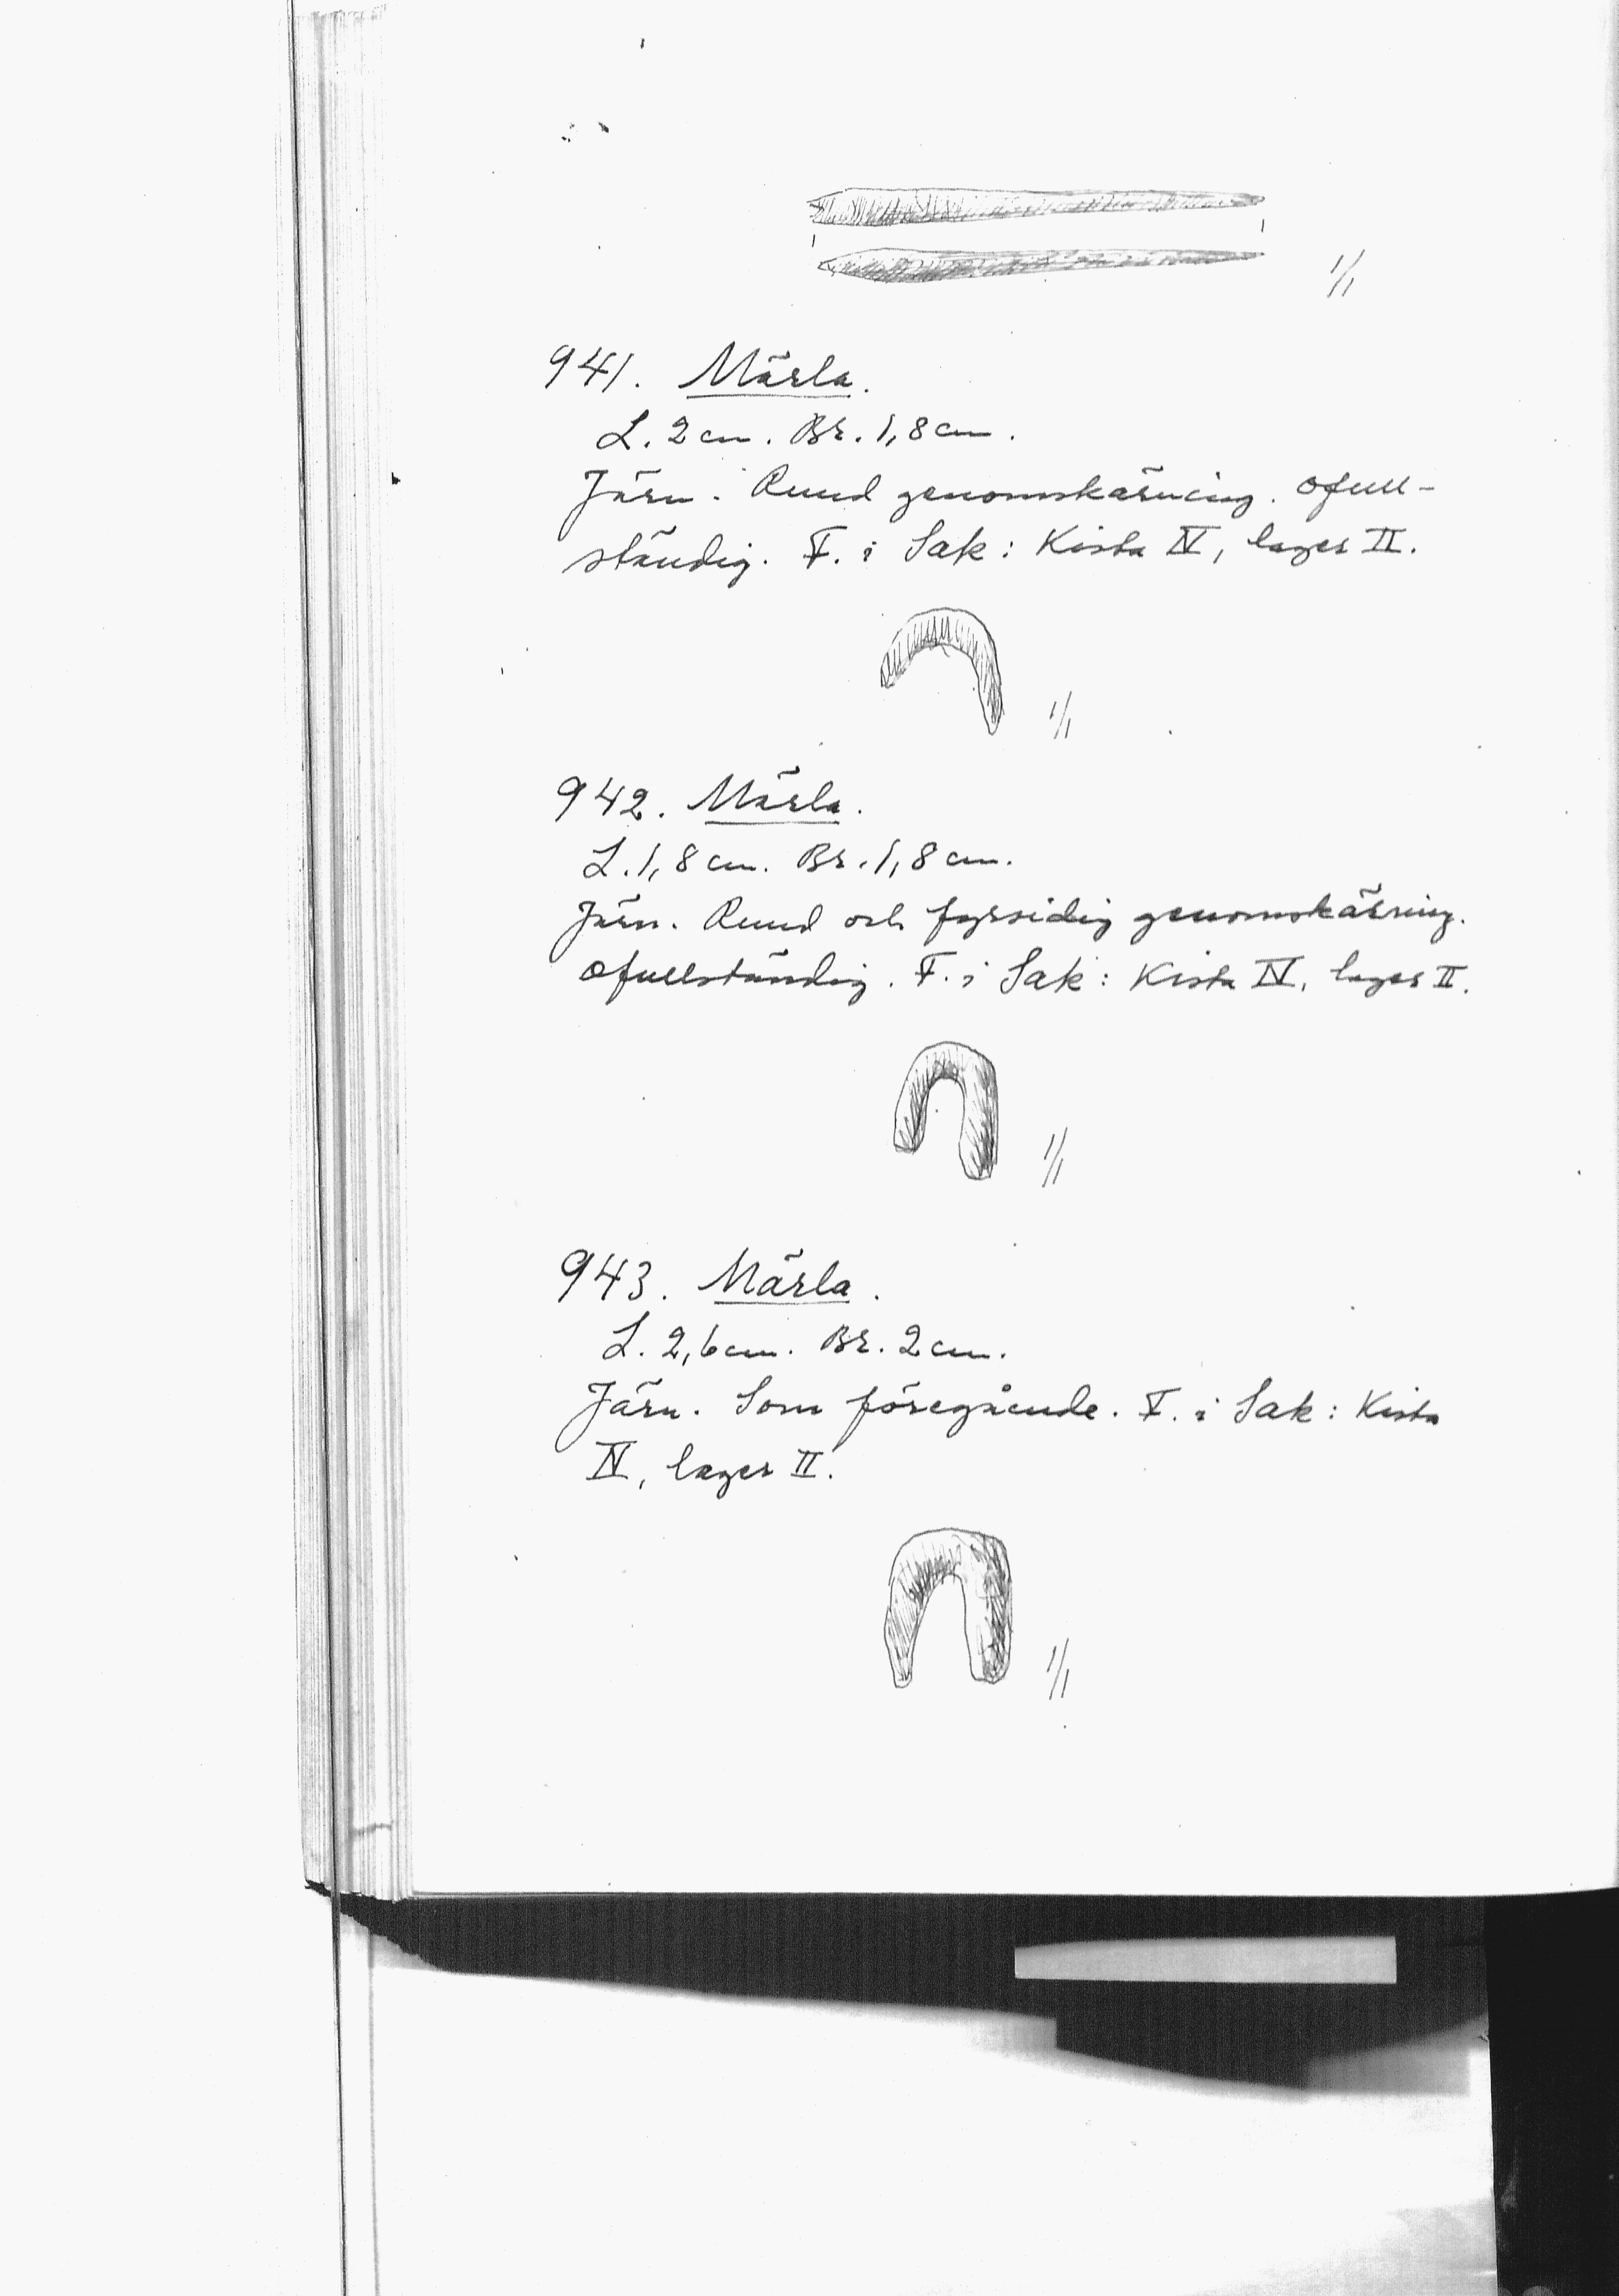 1/1
941. Märla.
L. 2 cm. Br. 1,8 cm.
Järn. Rund genomskärning. Ofull-
ständig. F. i Sak: Kista IV, lager II.
1/1
942. Märla.
L. 1,8 cm. Br. 1,8 cm.
Järn. Rund och fyrsidig genomskärning.
Ofullständig. F. i Sak: Kista IV, lager II.
1/1
943. Märla.
L. 2,6 cm. Br. 2 cm.
Järn. Som föregående. F. i Sak: Kista
IV, lager II.
1/1